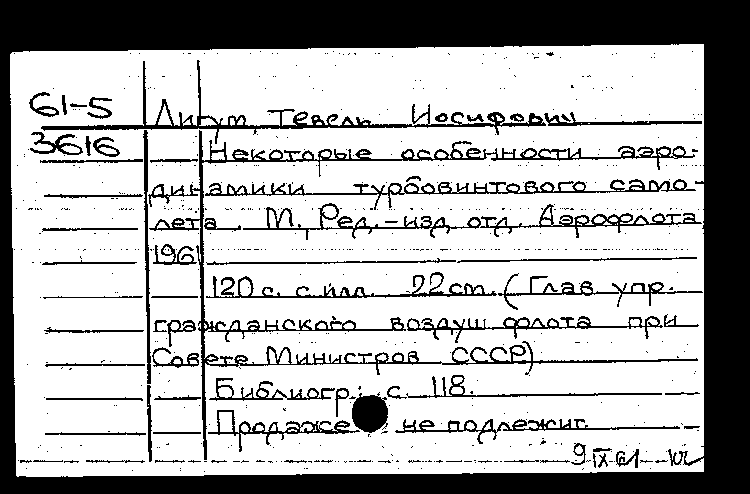 61-5 Лигум, Тевель Иосифович
3616 Некоторые особенности аэро-
динамики турбовинтового само-
лета. М., Ред.-изд. отд. Аэрофлота
1961
120 с. с илл. 22 cm. (Глав. упр.
гражданского воздуш. флота при
Совете Министров СССР)
Библиогр.: с. 118.
Продаже не подлежит.
9 IX 61